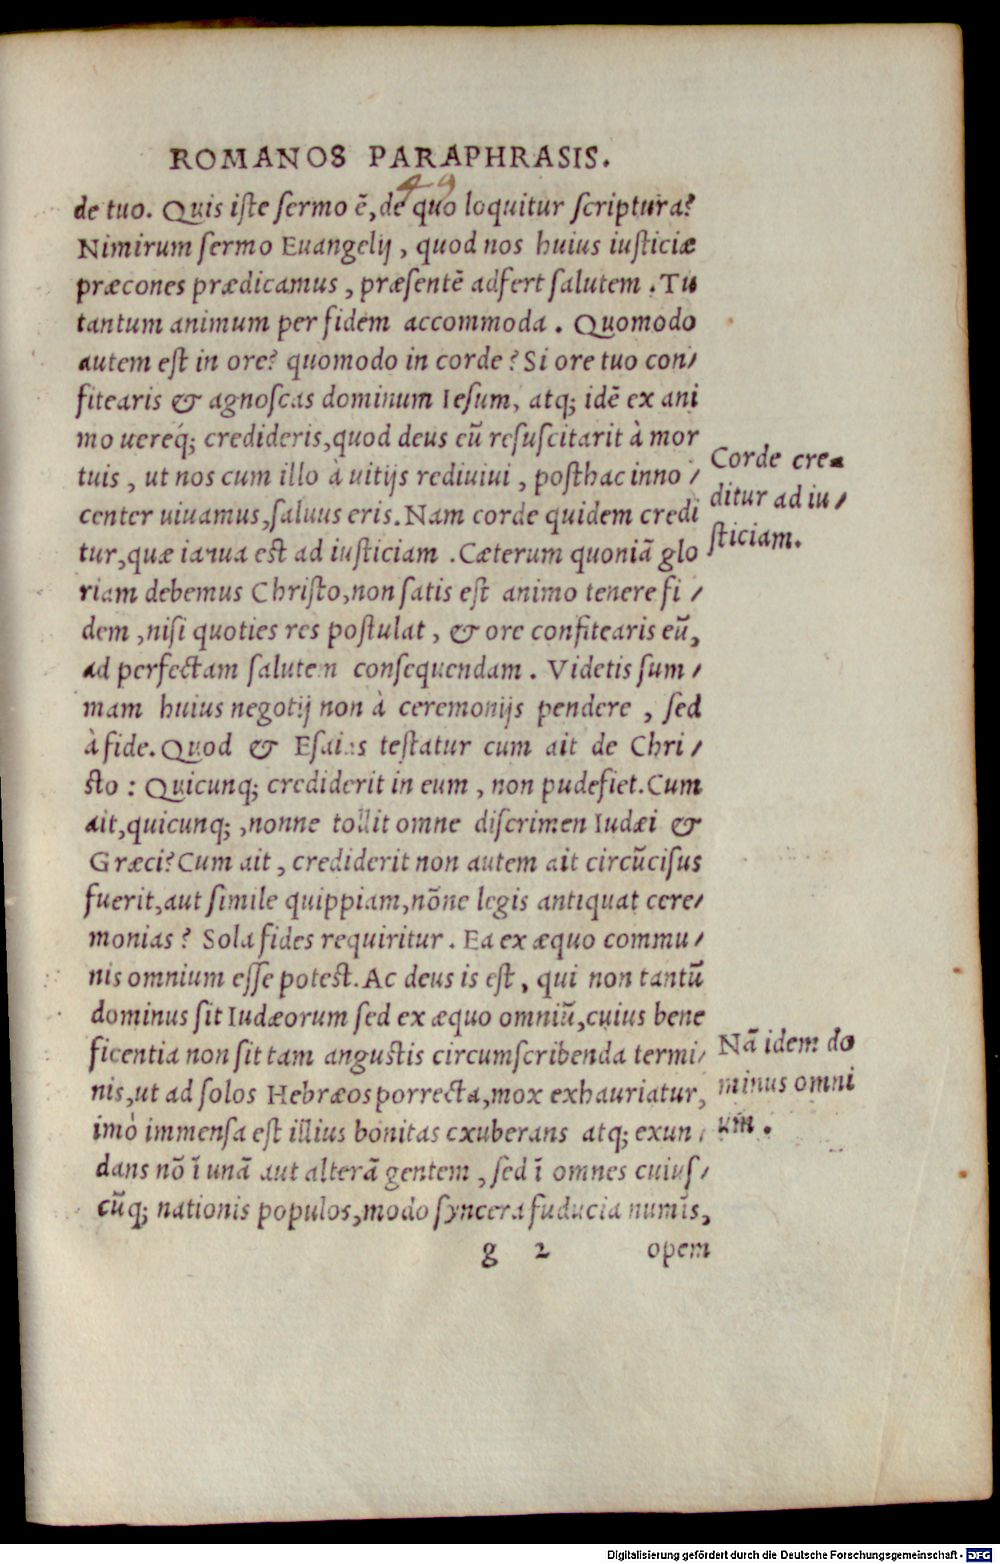 ROMANOS PARAPHRASIS.
49
de tuo. Quis iſte ſermo ẽ, de quo loquitur ſcriptura?
Nimirum ſermo Euangelij, quod nos huius iuſticiæ
præcones prædicamus, præſentẽ adfert ſalutem. Tu
tantum animum per fidem accommoda. Quomodo
autem eſt in ore? quomodo in corde? Si ore tuo con/
fitearis & agnoſcas dominum Ieſum, atq; idẽ ex ani
mo uereq́; credideris, quod deus eũ reſuſcitarit à mor
tuis, ut nos cum illo à uitijs rediuiui, poſthac inno/
center uiuamus, ſaluus eris. Nam corde quidem credi
tur, quæ ianua eſt ad iuſticiam. Cæterum quoniã glo
riam debemus Chriſto, non ſatis eſt animo tenere fi/
dem, niſi quoties res poſtulat, & ore confitearis eũ,
ad perfectam ſalutem conſequendam. Videtis ſum/
mam huius negotij non à ceremonijs pendere, ſed
à fide. Quod & Eſaias teſtatur cum ait de Chri/
ſto: Quicunq; crediderit in eum, non pudefiet. Cum
ait, quicunq;, nonne tollit omne diſcrimen Iudæi &
Græci? Cum ait, crediderit non autem ait circũciſus
fuerit, aut ſimile quippiam, nõne legis antiquat cere/
monias? Sola fides requiritur. Ea ex æquo commu/
nis omnium eſſe poteſt. Ac deus is eſt, qui non tantũ
dominus ſit Iudæorum ſed ex æquo omniũ, cuius bene
ficentia non ſit tam anguſtis circumſcribenda termi/
nis, ut ad ſolos Hebræos porrecta, mox exhauriatur,
imò immenſa eſt illius bonitas exuberans atq; exun/
dans nõ ĩ unã aut alterã gentem, ſed ĩ omnes cuiuſ/
cũq; nationis populos, modo ſyncera fuducia numĩs,
g 2 opem
Corde cre-
ditur ad iu/
ſticiam.
Nã idem do
minus omni
um.
Digitalisierung gefördert durch die Deutsche Forschungsgemeinschaft - DFG